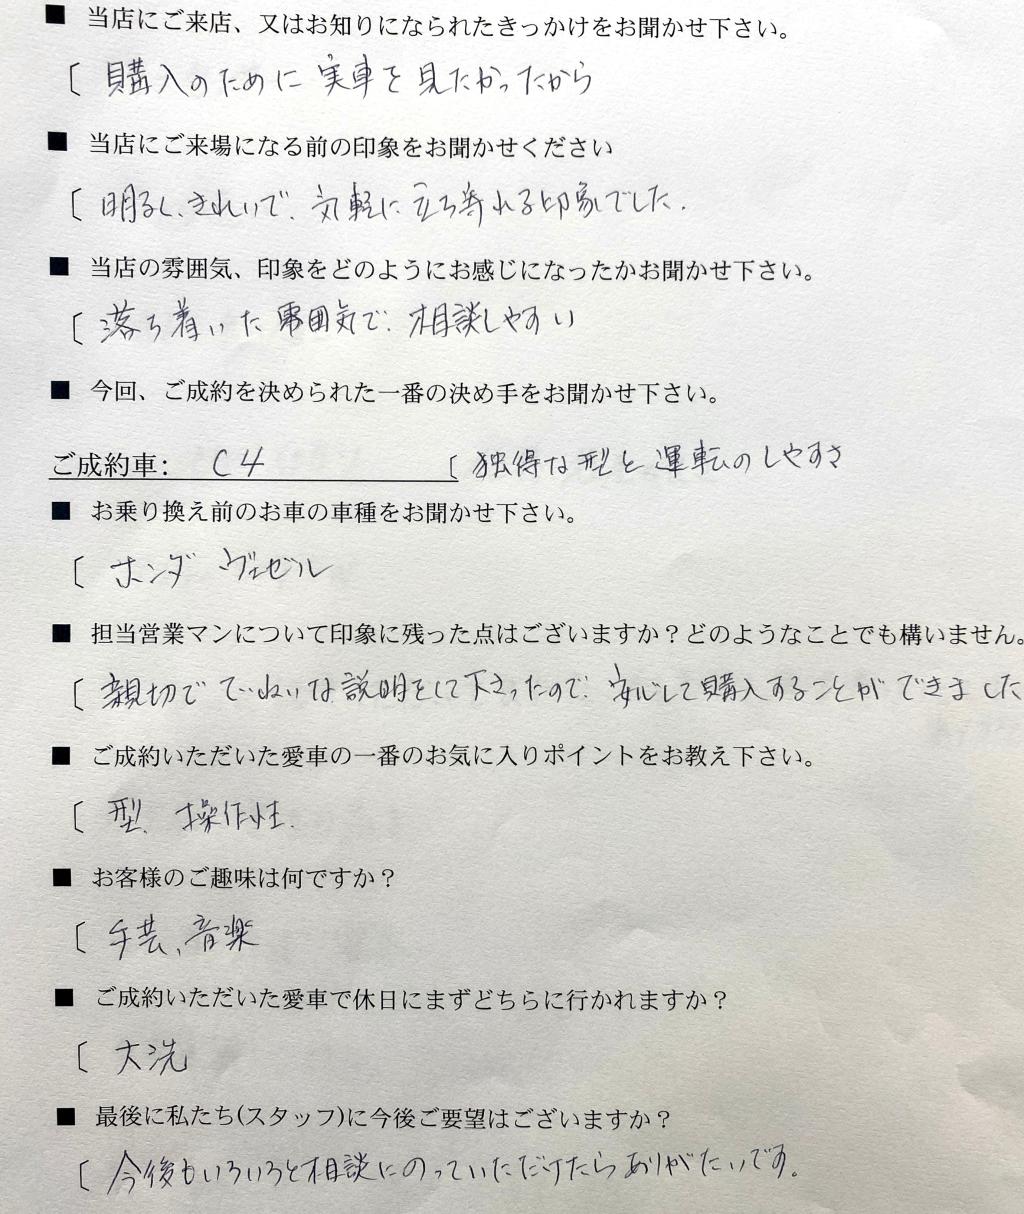 ■ 当店にご来店、又はお知りになられたきっかけをお聞かせ下さい。
〔 購入のために 実車を 見たかったから
■ 当店にご来場になる前の印象をお聞かせください
〔 明るく、きれいで、気軽に立ち寄れる印象でした。
■ 当店の雰囲気、印象をどのようにお感じになったかお聞かせ下さい。
〔 落ち着いた雰囲気で、相談しやすい
■ 今回、ご成約を決められた一番の決め手をお聞かせ下さい。
ご成約車: C4 〔 独得な型と運転のしやすさ
■ お乗り換え前のお車の車種をお聞かせ下さい。
〔 ホンダ ヴェゼル
■ 担当営業マンについて印象に残った点はございますか？どのようなことでも構いません。
〔 親切でていねいな説明をして下さったので、安心して購入することができました
■ ご成約いただいた愛車の一番のお気に入りポイントをお教え下さい。
〔 型、操作性。
■ お客様のご趣味は何ですか？
〔 手芸、音楽
■ ご成約いただいた愛車で休日にまずどちらに行かれますか？
〔 大洗
■ 最後に私たち(スタッフ)に今後ご要望はございますか？
〔 今後もいろいろと相談にのっていただけたらありがたいです。